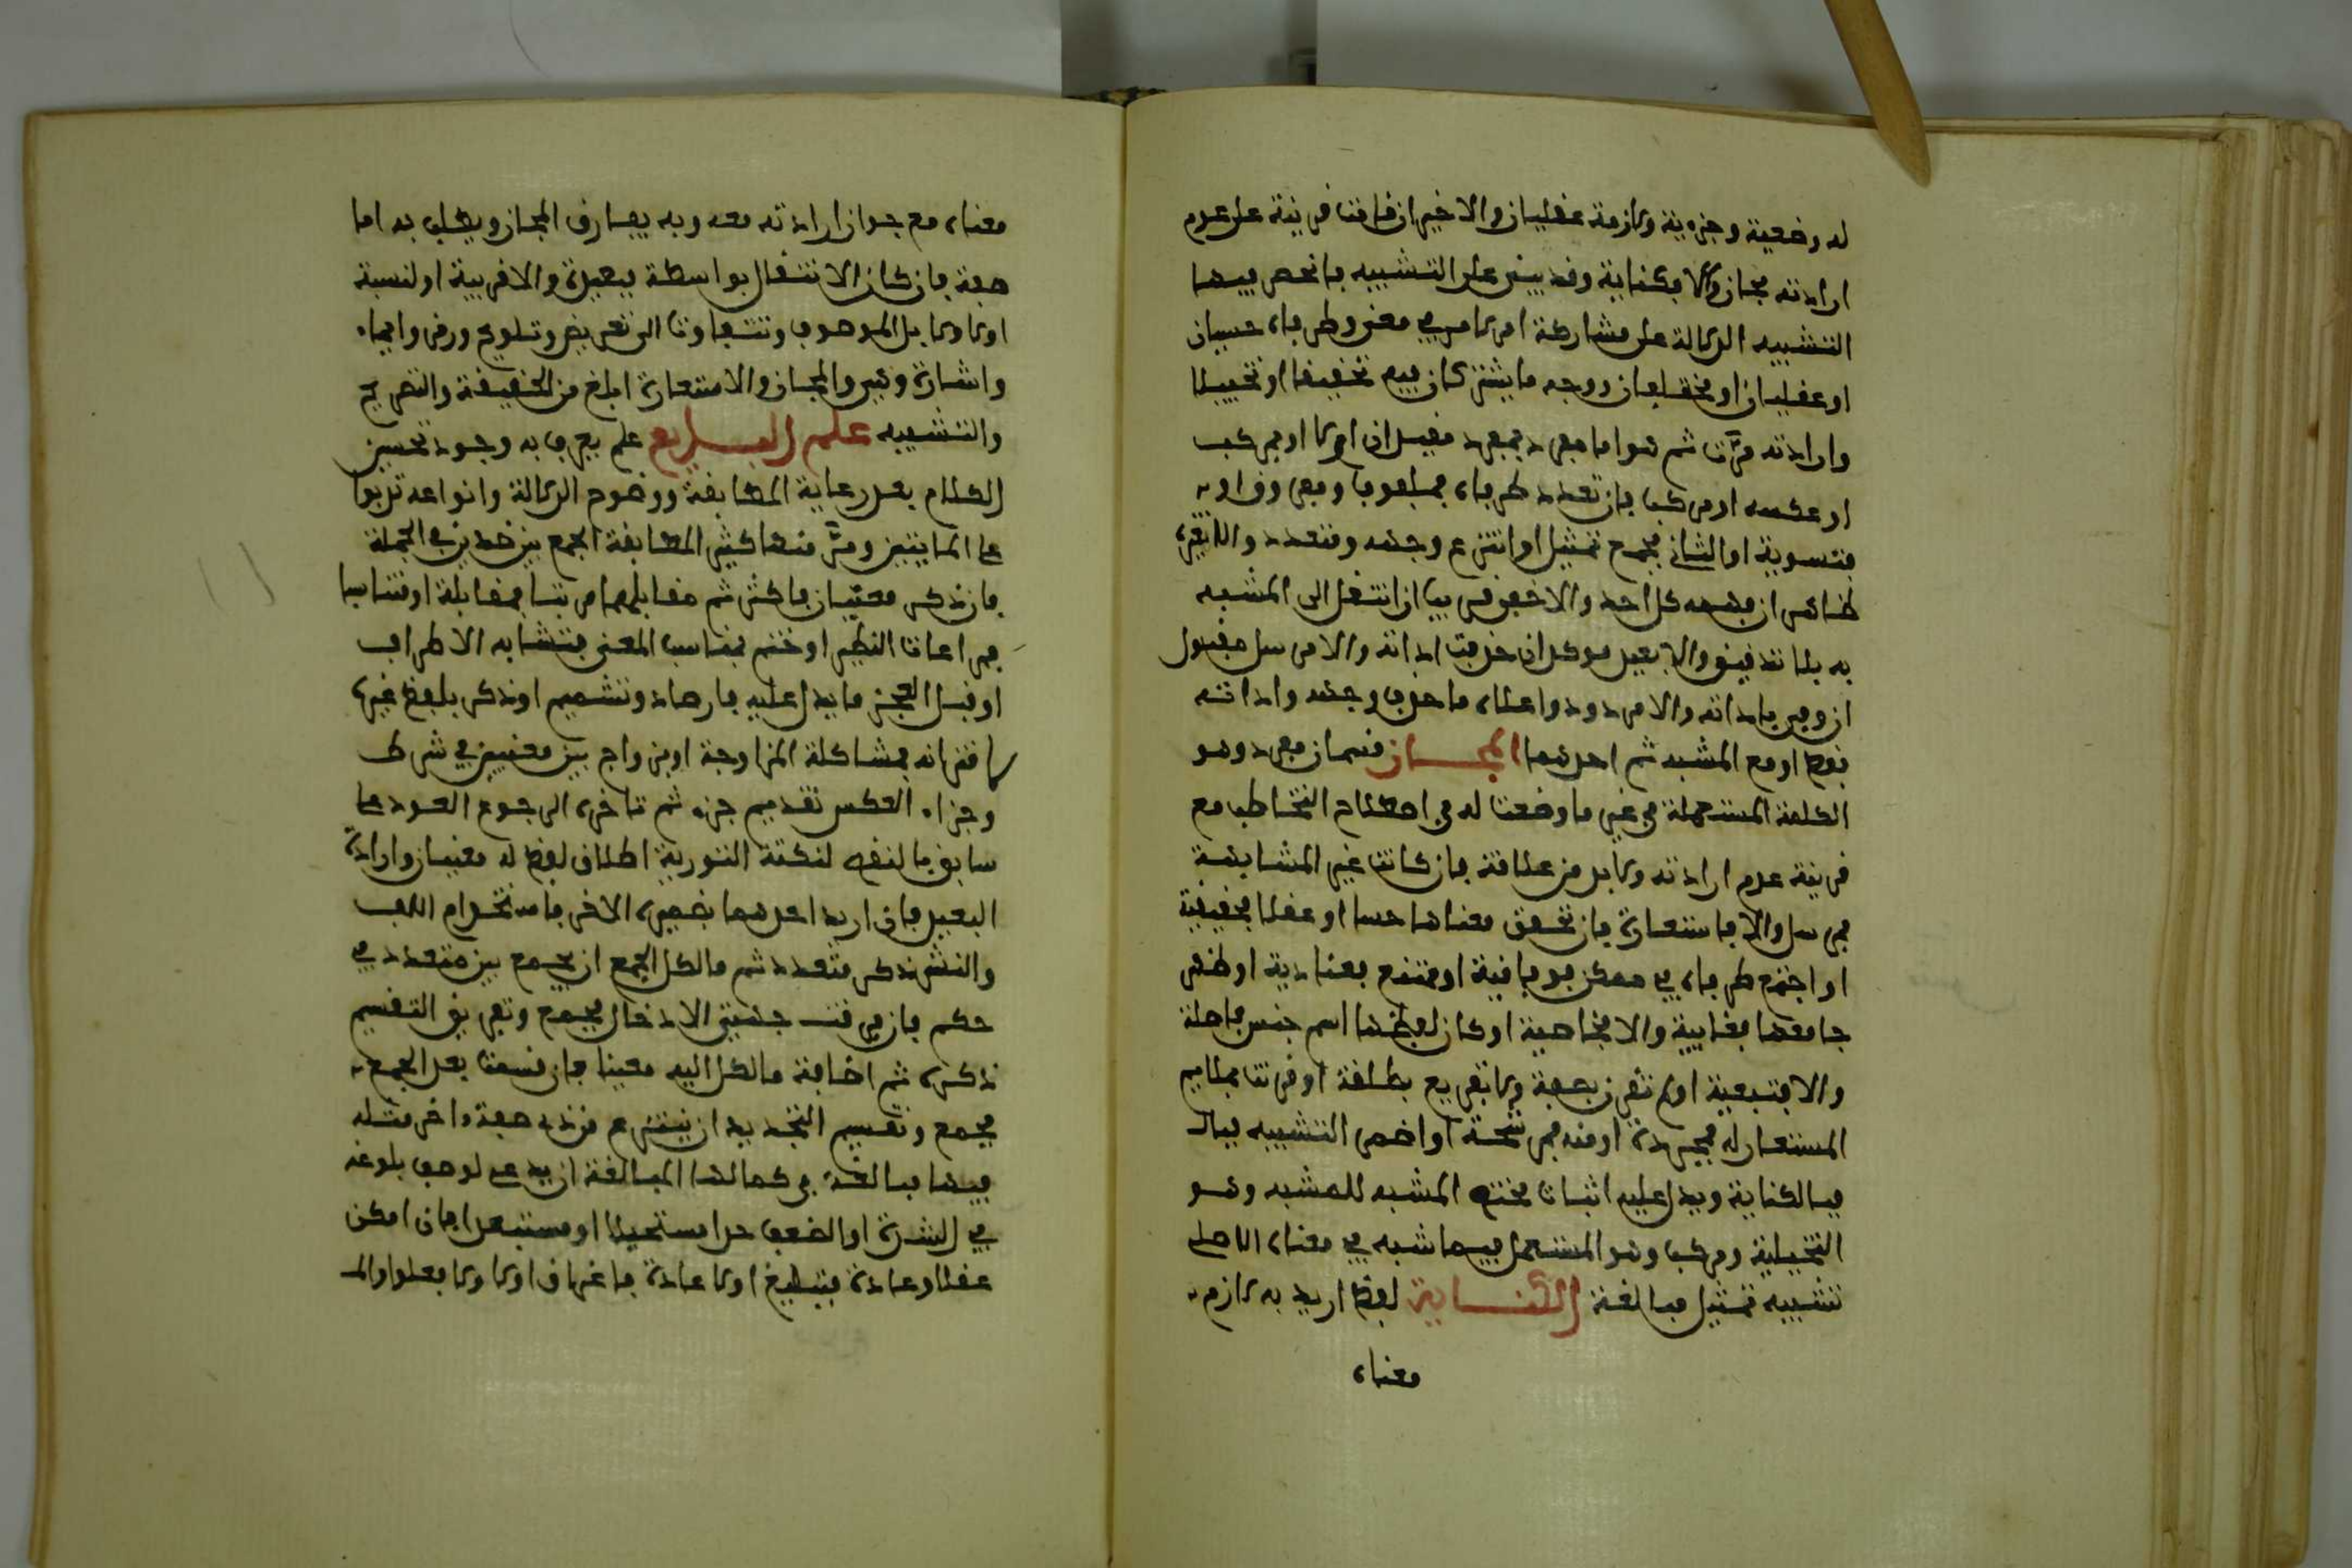 له وضعية وجزءية ولازمة عقليان والاخيران قامت قرينة على عدم
ارادته مجاز والا فكناية وقد يبنى على التشبيه فانحصر فيها
التشبيه الدلالة على مشاركة امر لامر في معنى وطرفاه حسيان
او عقليان او مختلفان ووجه ما يشتركان فيه تحقيقا او تخييلا
واداته مرت ثم هو اما مفرد بمفرد مقيدان اولا او بمركب
او عكسه او مركب فان تعدد طرفاه فملفوف ومفروق اوله
فتسوية او الثاني فجمع تمثيل ان انتزع وجهه ومتعدد والا غيره
ظاهر ان فهمه كل احد والا خفي قريب ان انتقل الى المشبه
به بلا تدقيق والا بعيد موكد ان حذفت اداته والا مرسل مقبول
ان وفي بافادته والا مردود واعلاه ما حذف وجهه واداته
فقط او مع المشبه ثم احدهما المجاز قسمان مفرد وهو
الكلمة المستعملة في غير ما وضعت له في اصطلاح التخاطب مع
قرينة عدم ارادته ولا بد من علاقة فان كانت غير المشابهة
فمرسل والا فاستعارة فان تحقق معناها حسا او عقلا فحقيقية
او اجتمع طرفاه في ممكن فوفاقية او ممتنع فعنادية او ظهر
جامعها فعامية والا فخاصية او كان لفظها اسم جنس فاصلية
والا فتبعية او لم تقترن بصفة ولا تفريع فمطلقة او قرنت بملايم
المستعار له فمجردة او منه فمرشحة او اضمر التشبيه فبالـ
فبالكناية ويدل عليه اثبات مختص المشبه للمشبه وهو
التخييلية ومركب وهو المستعمل فيما شبه في معناه الاصلي
تشبيه تمثيل مبالغة الكناية لفظ اريد به لازم
معناه
معناه مع جواز ارادته معه وبه يفارق المجاز ويطلب به اما
صفة فان كان الانتقال بواسطة فبعيدة والا قريبة او نسبة
اولا ولا بل الموصوف وتتفاوت الى تعريض وتلويح ورمز وايماء
واشارة وهي والمجاز والاستعارة ابلغ من الحقيقة والتصريح
والتشبيه علم البديع علم يعرف به وجوه تحسين
الكلام بعد رعاية المطابقة ووضوح الدلالة وانواعه تربو
على المايتين ومر منها كثير المطابقة الجمع بين ضدين في الجملة
فان ذكر معنيان فاكثر ثم مقابلهما مرتبا فمقابلة او متناسبا
فمراعات النظير او ختم بمناسب المعنى فتشابه الاطراف
او قبل العجز ما يدل عليه فارصاد وتسهيم او ذكر بلفظ غيره
لاقترانه فمشاكلة المزاوجة ان يزاوج بين معنيين في شرط
وجزاء العكس تقديم جزء ثم تاخيره الرجوع العود على
سابق بالنقض لنكتة التورية اطلاق لفظ له معنيان وارادة
البعيد فان اريد احدهما بضميره الاخر فاستخدام اللف
والنشر ذكر متعدد ثم ما لكل الجمع ان يجمع بين متعدد في
حكم فان فرقت جهتي الادخال فجمع وتفريق التقسيم
ذكره ثم اضافة ما لكل اليه معينا فان قسمت بعد الجمع
فجمع وتقسيم التجريد ان ينتزع من ذي صفة اخر مثله
فيها مبالغة في كمالها المبالغة ان يدعى لوصف بلوغه
في الشدة او الضعف حدا مستحيلا او مستبعدا فان امكن
عقلا وعادة فتبليغ او لا عادة فاغراق او لا ولا فغلو والمـ